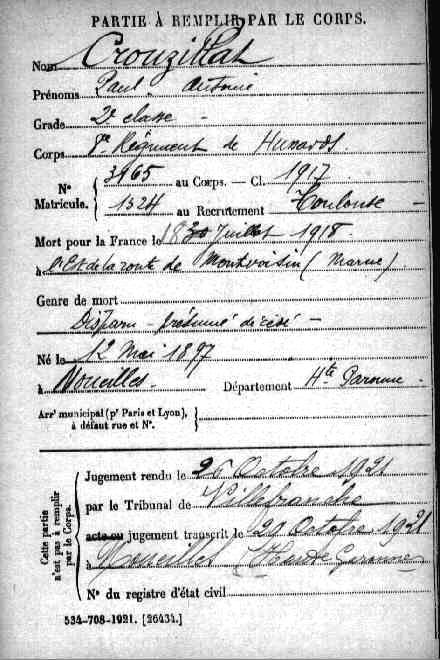 PARTIE À REMPLIR PAR LE CORPS.
Nom Crouzillat
Prénoms Paul Antonin
Grade 2e classe -
Corps 9e Régiment de Hussards.
N° Matricule. { 3965 au Corps. — Cl. 1917
1324 au Recrutement Toulouse -
Mort pour la France le 18 Juillet 1918
à l'Est de la route de Montvoisin (Marne)
Genre de mort
Disparu - présumé décédé -
Né le 12 Mai 1897
à Noueilles. Département Hte Garonne
Arrt municipal (pr Paris et Lyon), à défaut rue et N°. }
Cette partie n'est pas à remplir par le Corps.
Jugement rendu le 26 Octobre 1921
par le Tribunal de Villefranche
acte ou jugement transcrit le 29 Octobre 1921
à Noueilles (Haute Garonne)
N° du registre d'état civil
534-708-1921. [26434.]